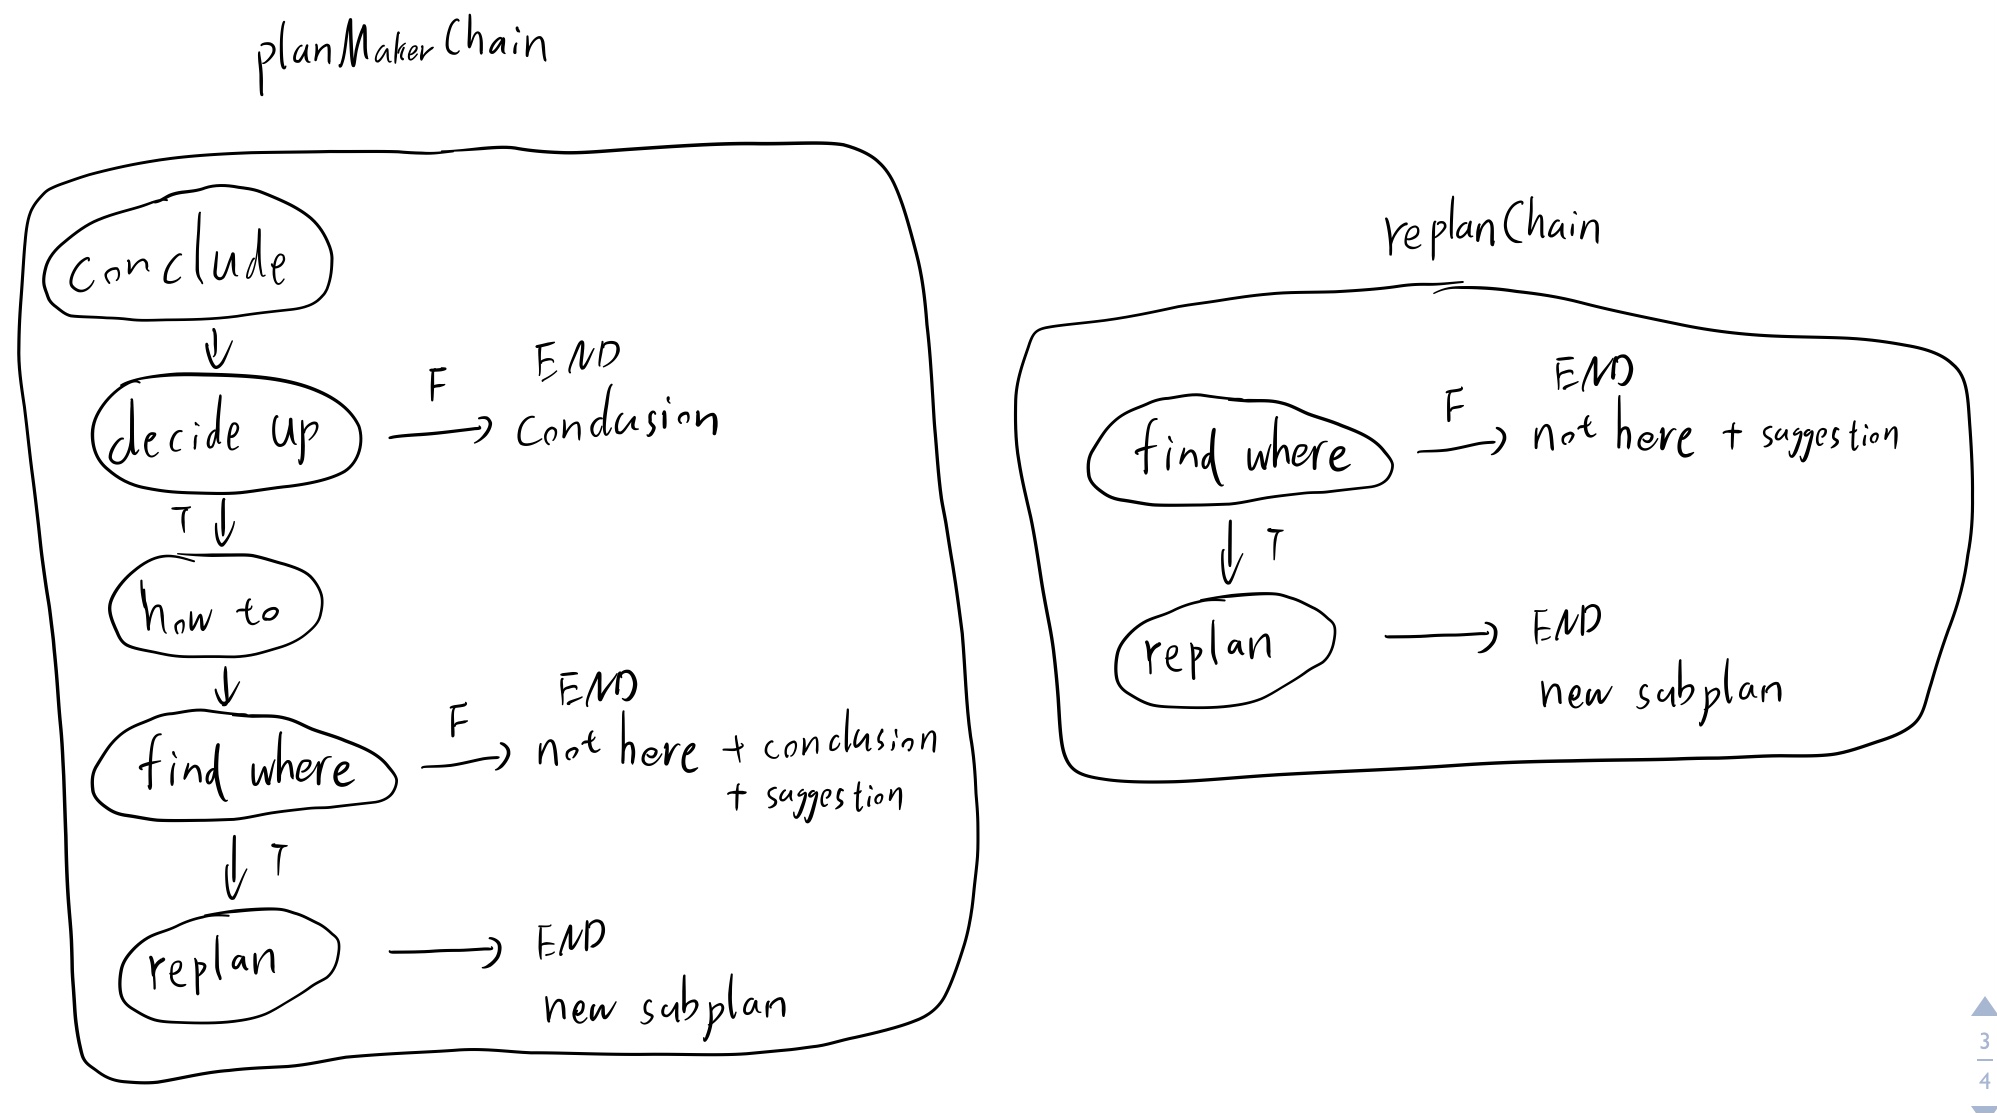 planMakerChain
conclude
decide up
F
END
conclusion
T
how to
find where
F
END
not here + conclusion
+ suggestion
T
replan
END
new subplan
replanChain
find where
F
END
not here + suggestion
T
replan
END
new subplan
3
4